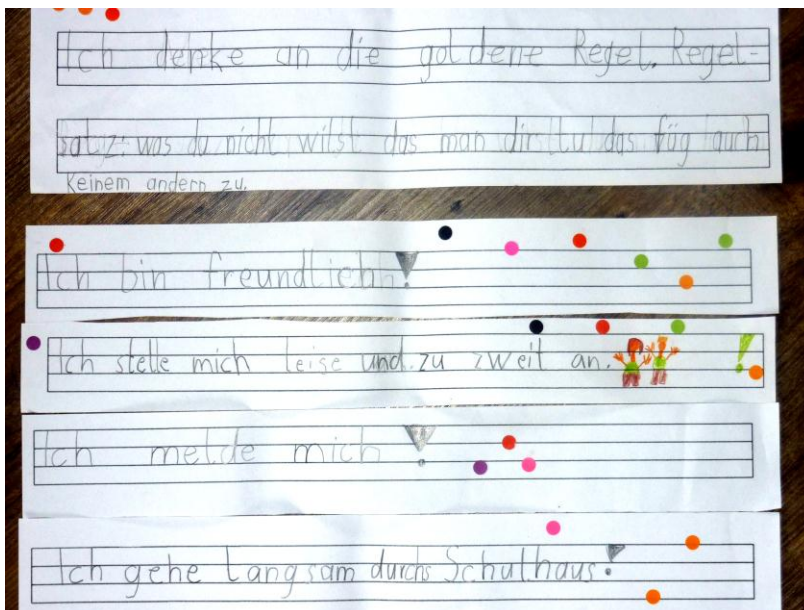 Ich denke an die goldene Regel. Regel-
satz: was du nicht wilst das man dir tu das füg auch
keinem andern zu.
Ich bin freundlich!
Ich stelle mich leise und zu zweit an. !
Ich melde mich !
Ich gehe langsam durchs Schulhaus!